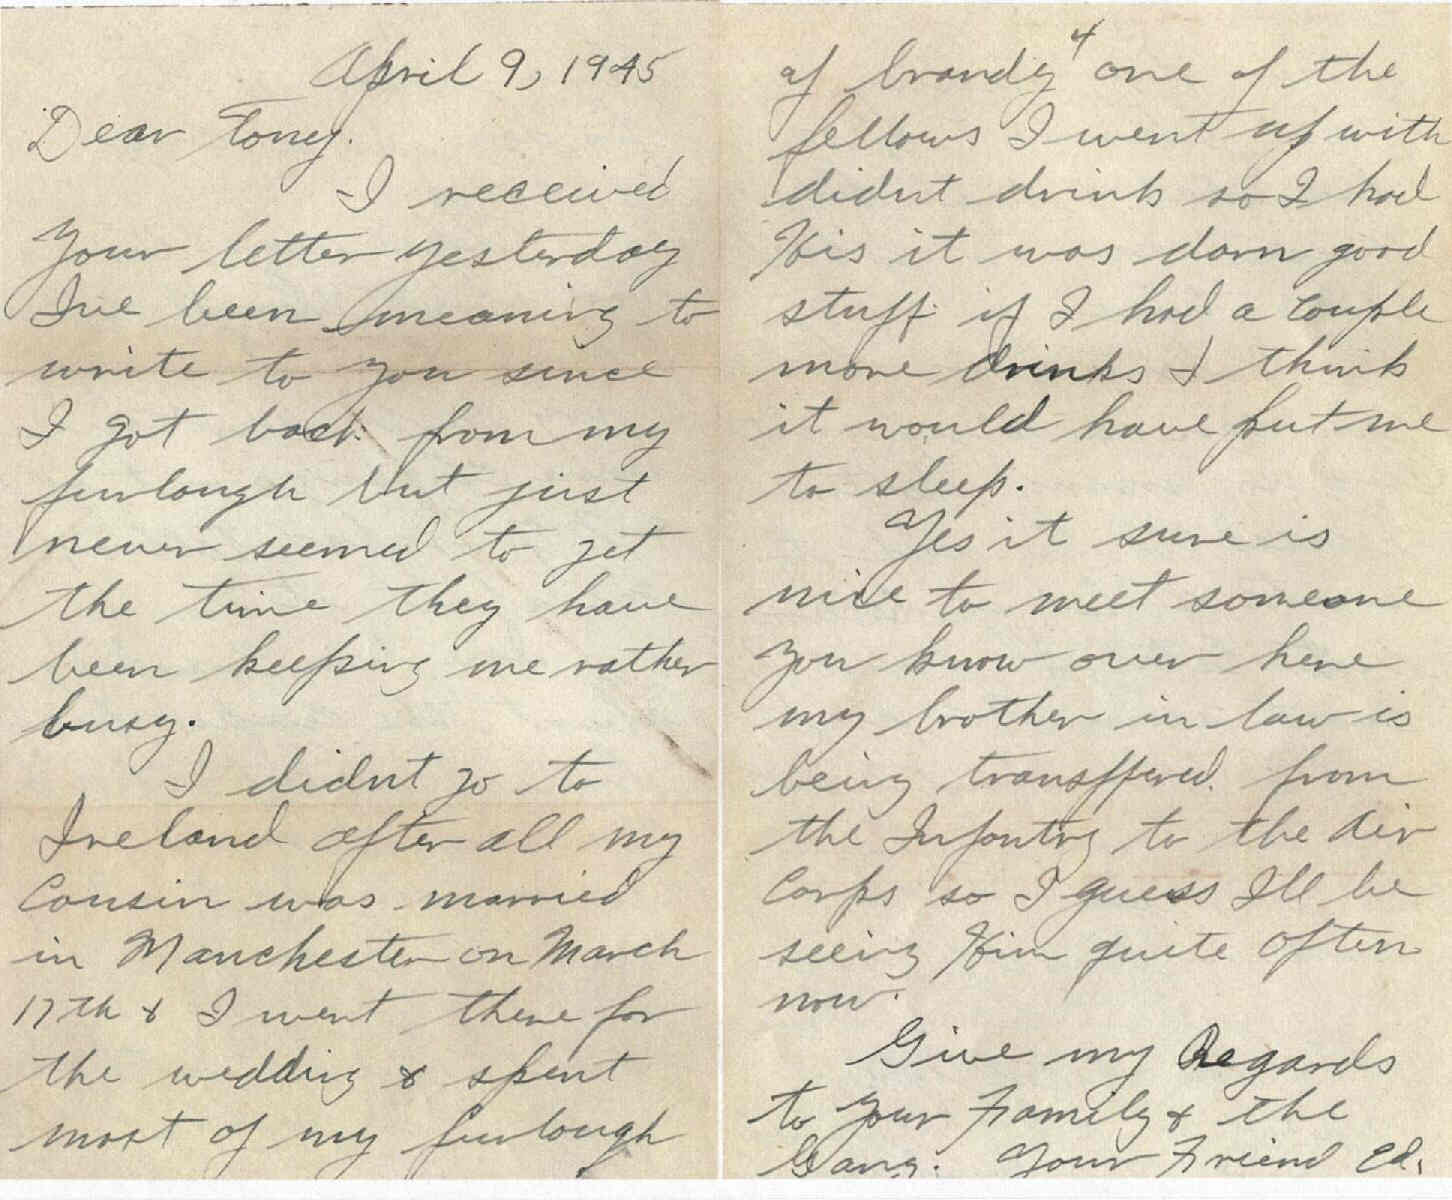 April 9, 1945
Dear Tony.
I received
your letter yesterday
Ive been meaning to
write to you since
I got back from my
furlough but just
never seemed to get
the time they have
been keeping me rather
busy.
I didnt go to
Ireland after all my
Cousin was married
in Manchester on March
17th & I went there for
the wedding & spent
most of my furlough
4
of brandy one of the
fellows I went up with
didnt drink so I had
His it was darn good
stuff if I had a couple
more drinks I think
it would have put me
to sleep.
Yes it sure is
nice to meet someone
you know over here
my brother in law is
being transffered from
the Infantry to the Air
Corps so I guess Ill be
seeing Him quite often
now.
Give my Regards
to your Family & the
Gang. Your Friend Ed.